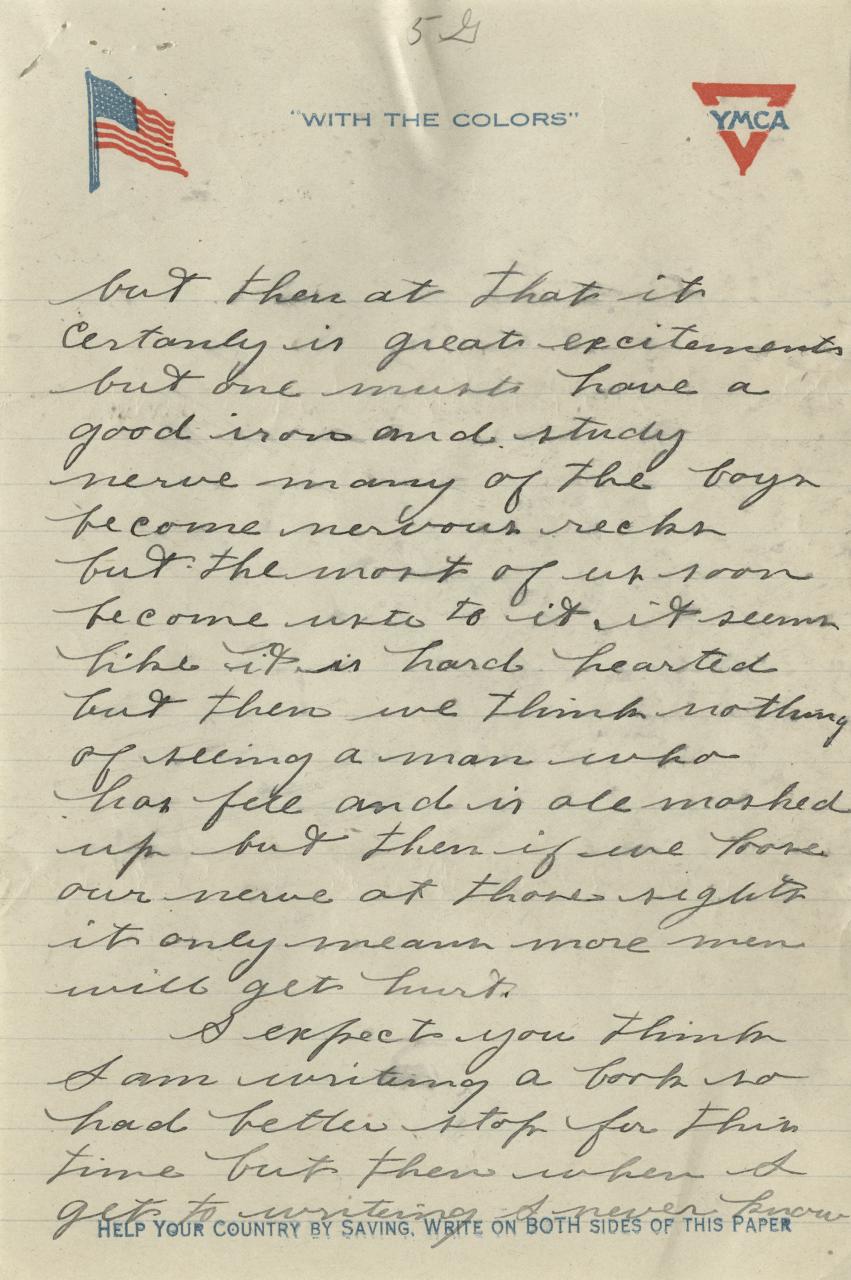 5 G
"WITH THE COLORS"
YMCA
but then at that it
certanly is great excitements
but one must have a
good iron and study
nerve many of the boys
become nervous recks
but the most of us soon
become uste to it, it seems
like it is hard hearted
but then we think nothing
of seeing a man who
has fell and is all mashed
up but then if we loose
our nerve at those sights
it only means more men
will get hurt.
I expect you think
I am writing a book so
had better stop for this
time but then when I
get to writing I never know
HELP YOUR COUNTRY BY SAVING. WRITE ON BOTH SIDES OF THIS PAPER